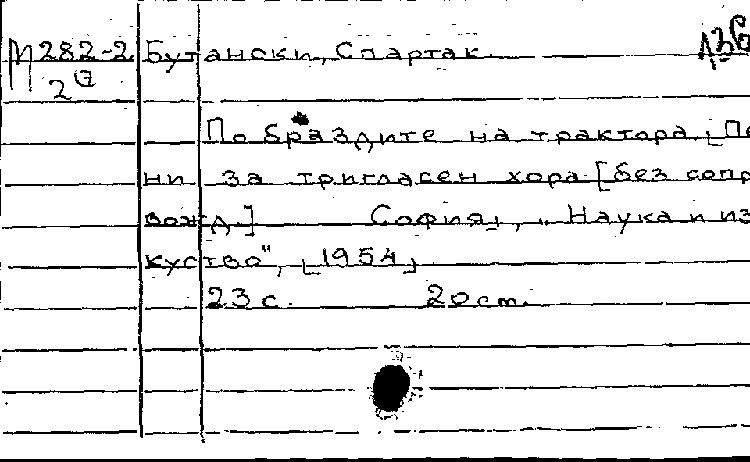 М 282-2 Бутански, Спартак 136
2
По браздите на трактора ⌊Пе
ни за тригласен хора [без сопр
вожд.] София⌋, „Наука и из
куство", ⌊1954⌋
23 с. 20 cm.